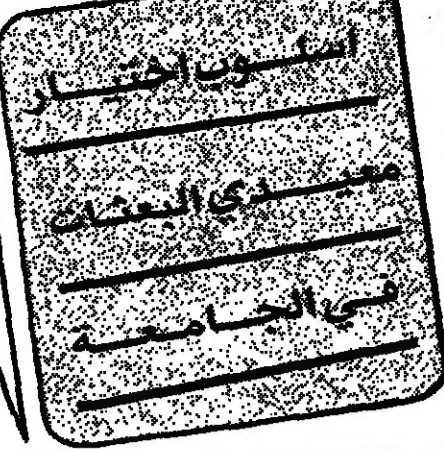 اسلوب اختيار
معيدي البعثات
في الجامعة